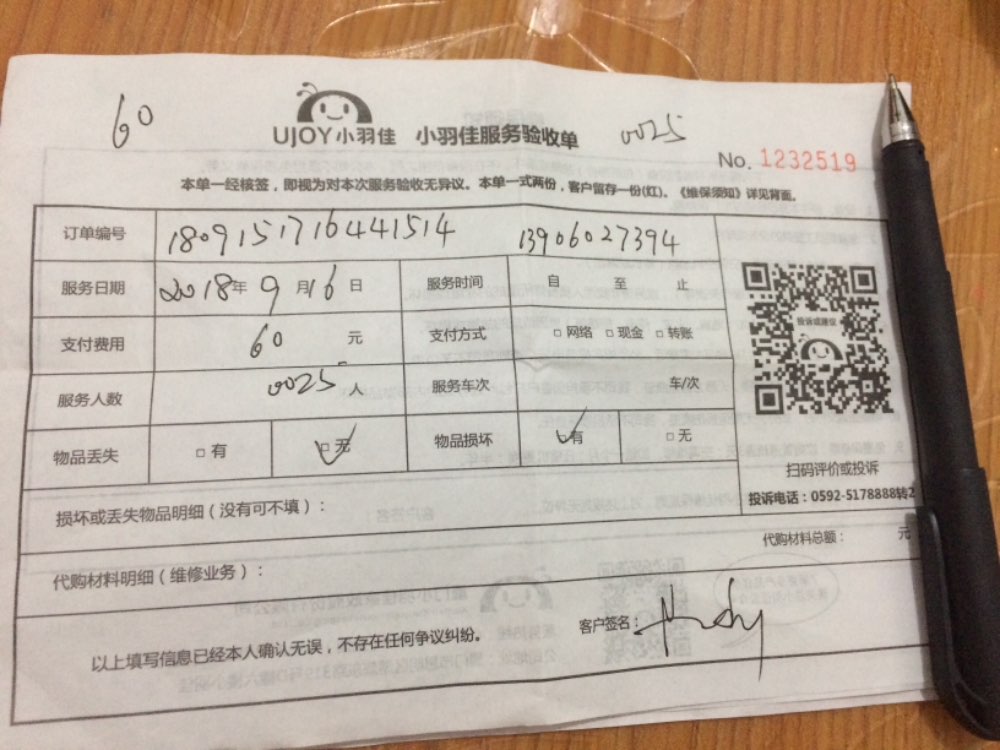 60
UJOY小羽佳 小羽佳服务验收单
0025
No. 1232519
本单一经核签，即视为对本次服务验收无异议。本单一式两份，客户留存一份(红)。《维保须知》详见背面。
订单编号 180915171644 1514 13906027394
服务日期 2018年 9 月 16 日 服务时间 自 至 止
支付费用 60 元 支付方式 □ 网络 □ 现金 □ 转账
服务人数 0025 人 服务车次 车/次
物品丢失 □ 有 □ 无 物品损坏 □ 有 □ 无
投诉或建议
扫码评价或投诉
投诉电话：0592-5178888转2
损坏或丢失物品明细（没有可不填）：
代购材料总额： 元
代购材料明细（维修业务）：
客户签名：
以上填写信息已经本人确认无误，不存在任何争议纠纷。